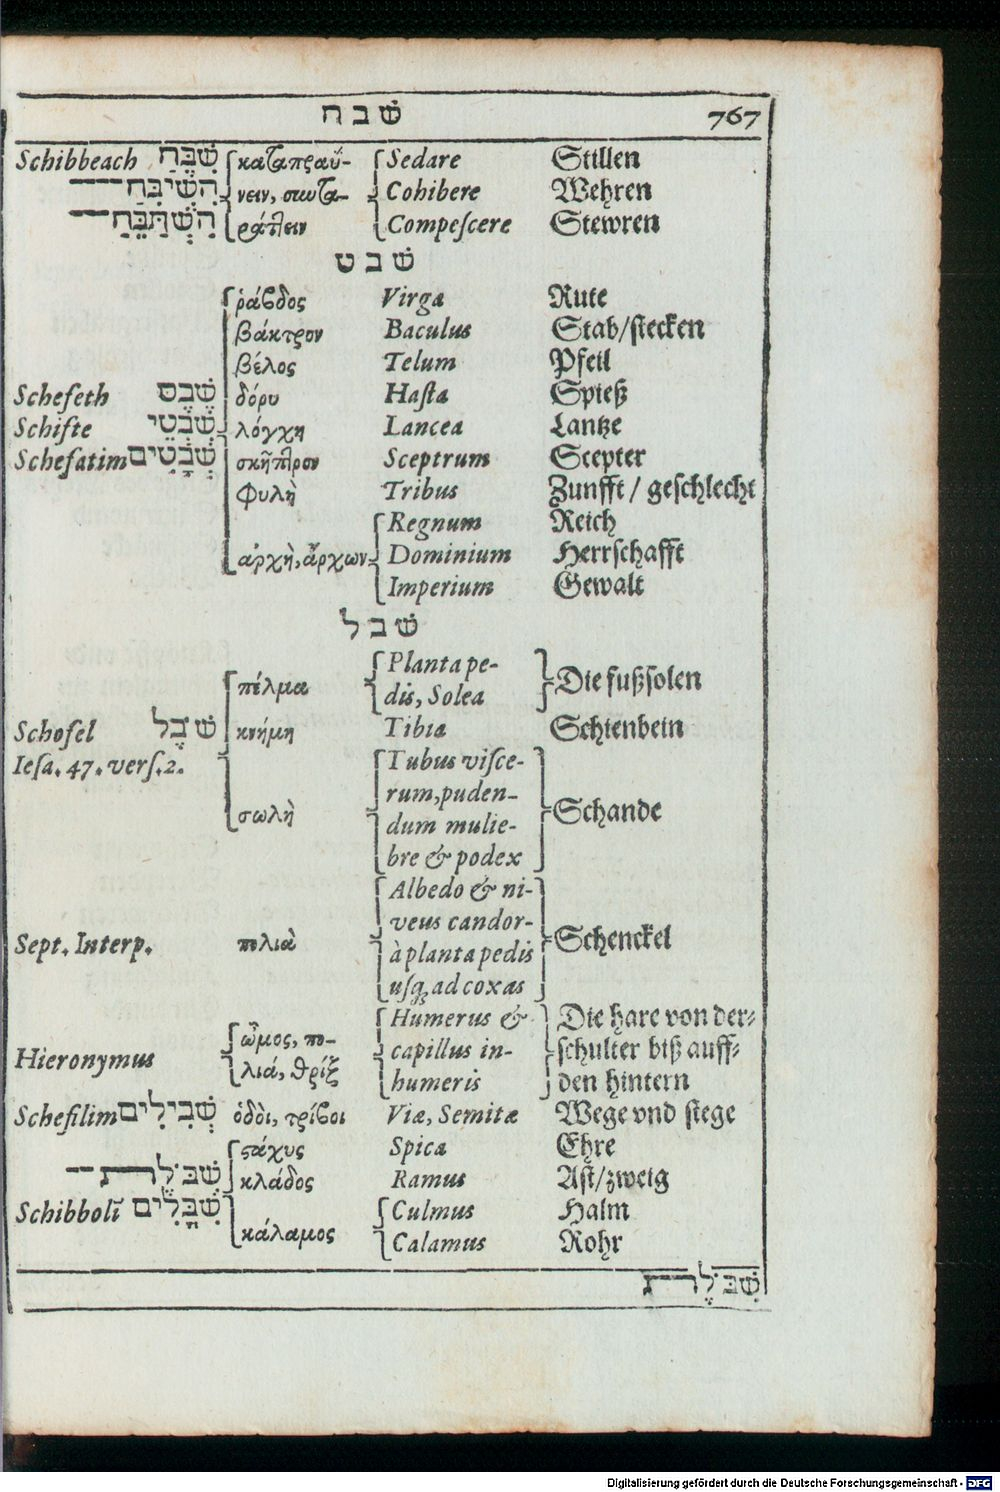 שׁבח 767
Schibbeach שִׁבֵּחַ καταπραΰ- Sedare Stillen
הִשְׁיבִּחַ νειν, συστα- Cohibere Wehren
הִשְׁתַּבֵּחַ ράπτειν Compeſcere Stewren
שׁבט
ῥάβδος Virga Rute
βάκτρον Baculus Stab/ſtecken
βέλος Telum Pfeil
Scheſeth שֵׁבֶט δόρυ Haſta Spieß
Schifte שִׁבְטֵי λόγχη Lancea Lantze
Schefatim שְׁבָטִים σκῆπτρον Sceptrum Scepter
φυλὴ Tribus Zunfft / geſchlecht
Regnum Reich
ἀρχὴ, ἄρχων Dominium Herrſchafft
Imperium Gewalt
שׁבל
Planta pe-
πέλμα dis, Solea Die fußſolen
Schofel שׁבֶל κνήμη Tibia Schienbein
Ieſa. 47. verſ. 2. Tubus viſce-
rum, puden-
σωλὴ dum mulie- Schande
bre & podex
Albedo & ni-
veus candor-
Sept. Interp. πολιὰ à planta pedis Schenckel
uſq; ad coxas
Humerus & Die hare von der-
ὦμος, πο- capillus in- ſchulter biß auff-
Hieronymus λιά, θρίξ humeris den hintern
Schefilim שְׁבִילִים ὁδὸι, τρίβοι Viæ, Semitæ Wege vnd ſtege
στάχυς Spica Ehre
שִׁבֹּלֶת κλάδος Ramus Aſt/zweig
Schibbolī שִׁבֳּלִים Culmus Halm
κάλαμος Calamus Rohr
שִׁבֹּלֶת
Digitalisierung gefördert durch die Deutsche Forschungsgemeinschaft - DFG